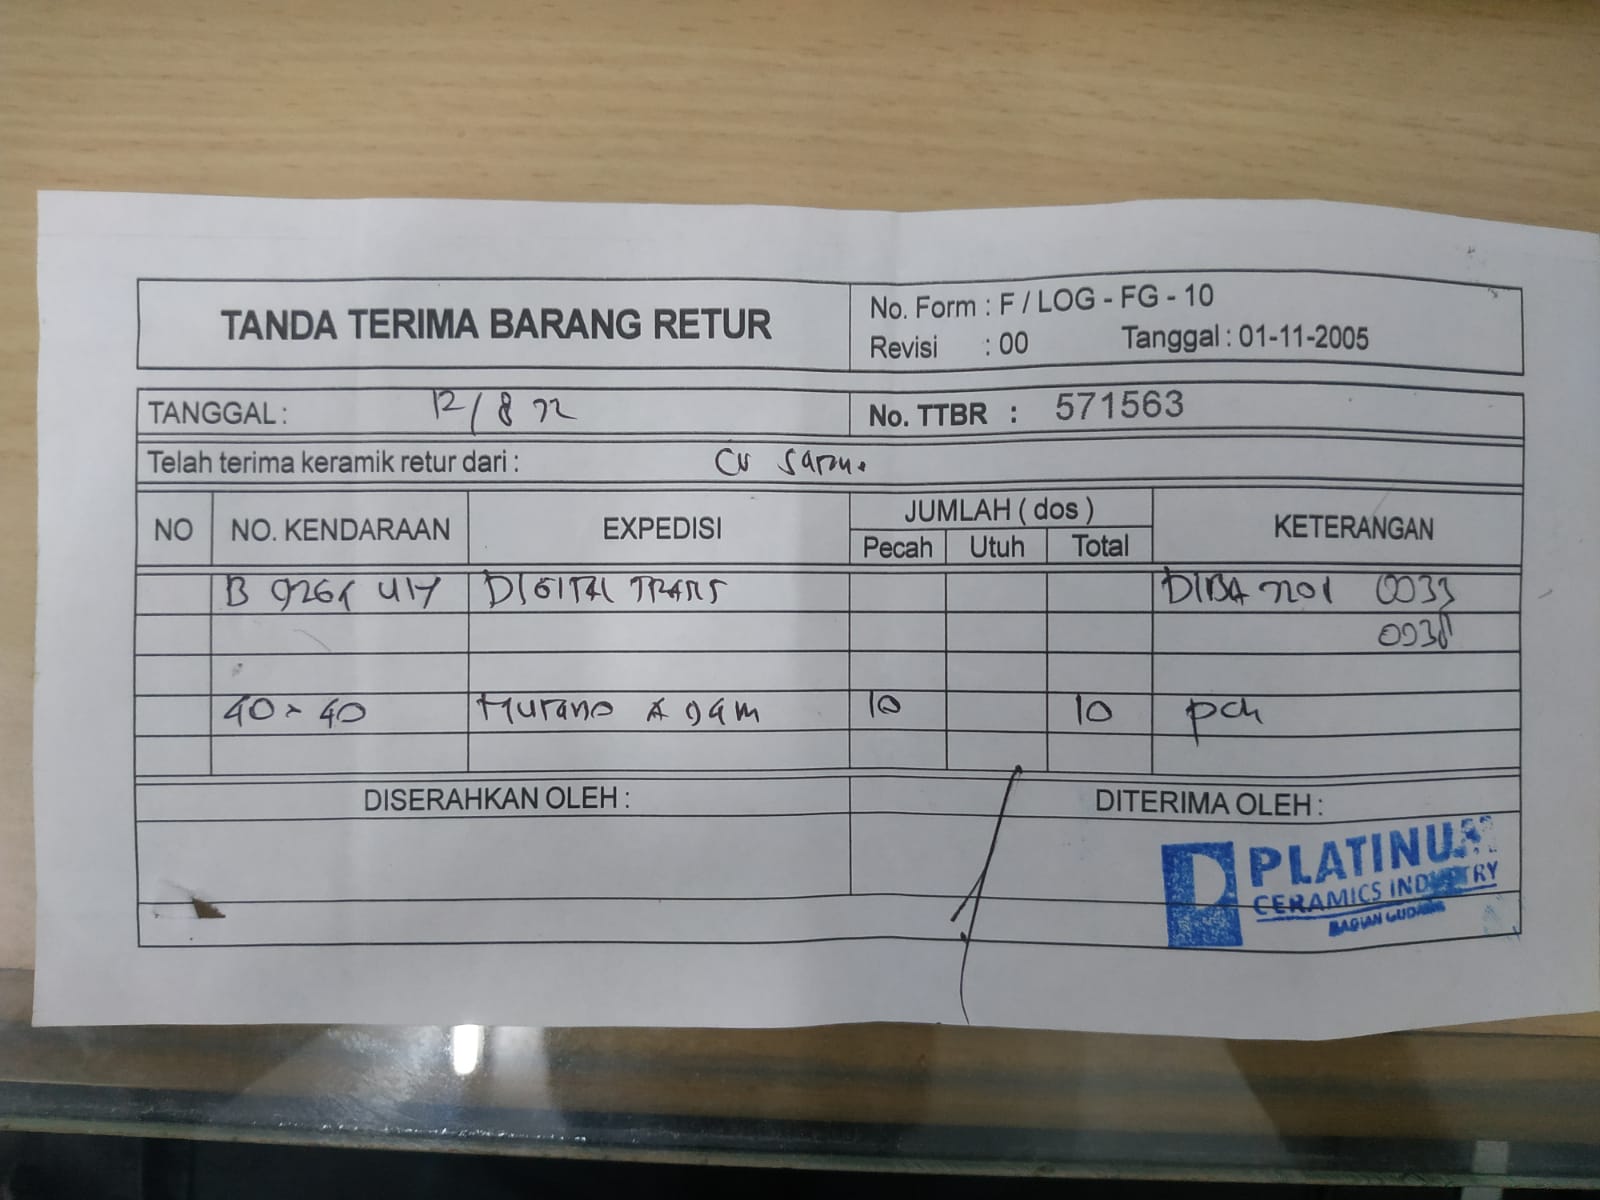 TANDA TERIMA BARANG RETUR
No. Form : F / LOG - FG - 10
Revisi : 00 Tanggal : 01-11-2005
TANGGAL : 12/8 22
No. TTBR : 571563
Telah terima keramik retur dari : CV
NO NO. KENDARAAN EXPEDISI JUMLAH ( dos ) KETERANGAN
Pecah Utuh Total
B DIGITAL TRANS DIBA 2201 0033
0038
40 x 40 Murano Agam 10 10 pch
DISERAHKAN OLEH :
DITERIMA OLEH :
PLATINUM
CERAMICS INDUSTRY
BAGIAN GUDANG